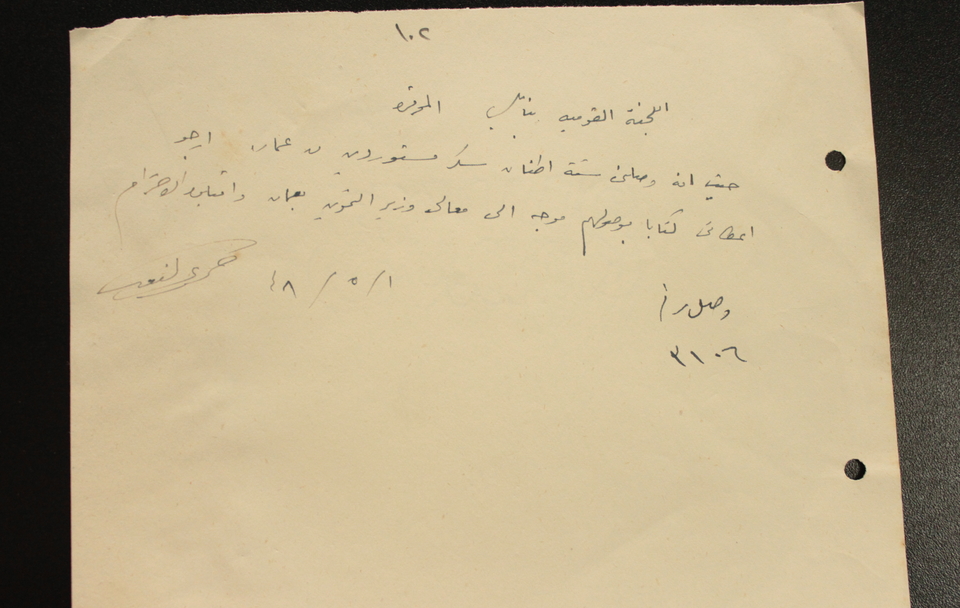 ١٠٢
اللجنة القومية بنابلس الموقرة
حيث انه وصلني ستة اطنان سكر مستوردين من عمان ارجو
اعطائي كتابا بوصولهم موجه الى معالي وزير التموين بعمان واقبلوا الاحترام
١ / ٥ / ٤٨
وصل رقم
٣١٠٦